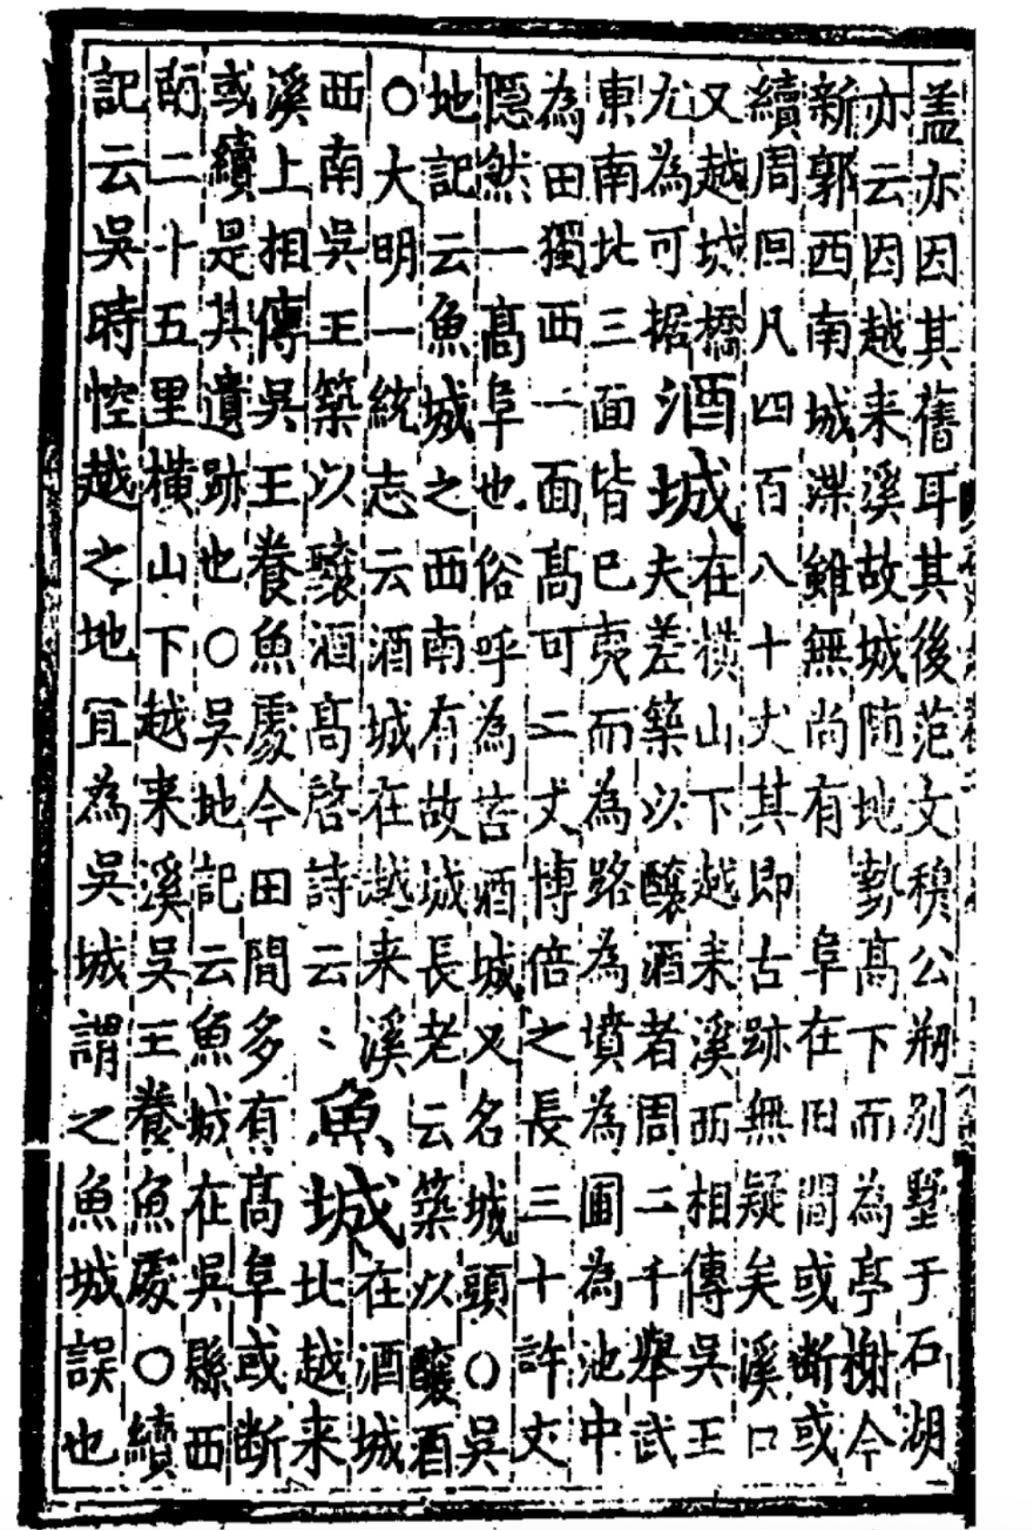 盖亦因其舊耳其後范文穆公剏别墅于石湖
亦云因越来溪故城随地勢高下而為亭榭今
新郭西南城濠雖無尚有　阜在田間或断或
續周囬凡四百八十丈其即古跡無疑矣溪口
又越城橋
尤為可据
酒城
在横山下越来溪西相傳吳王
夫差築以醸酒者周二千舉武
東南北三面皆已夷而為路為墳為圃為池中
為田獨西一面高可二丈博倍之長三十許丈
隠然一高阜也俗呼為苦酒城又名城頭○吳
地記云魚城之西南有故城長老云築以醸酒
○大明一統志云酒城在越来溪
西南吳王築以醸酒高啓詩云〻
魚城
在酒城
北越来
溪上相傳吳王養魚處今田間多有高阜或断
或續是其遺跡也○吳地記云魚城在吳縣西
南二十五里横山下越来溪吳王養魚處○續
記云吳時控越之地宜為吳城謂之魚城誤也